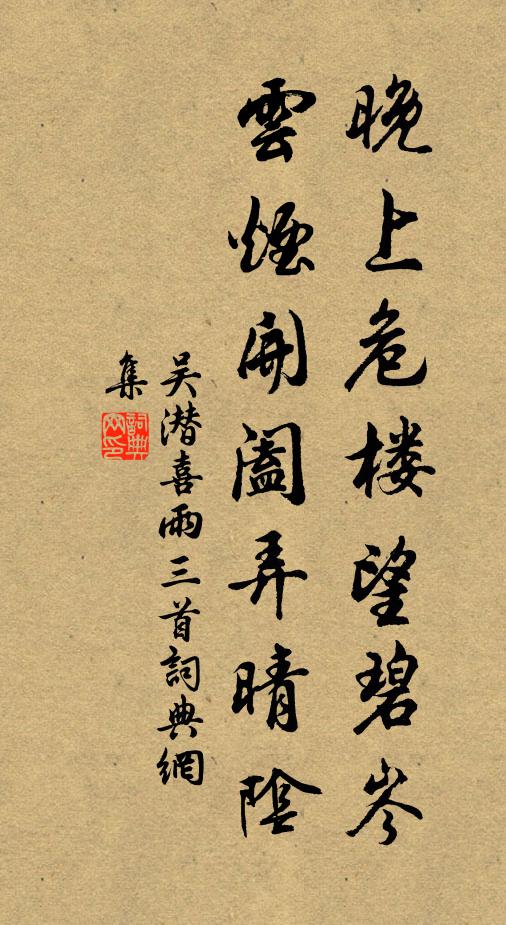 晚上危楼望碧岑
雲煙開闔弄晴陰
吴潜喜雨三首詞典網
集
詞典
网印